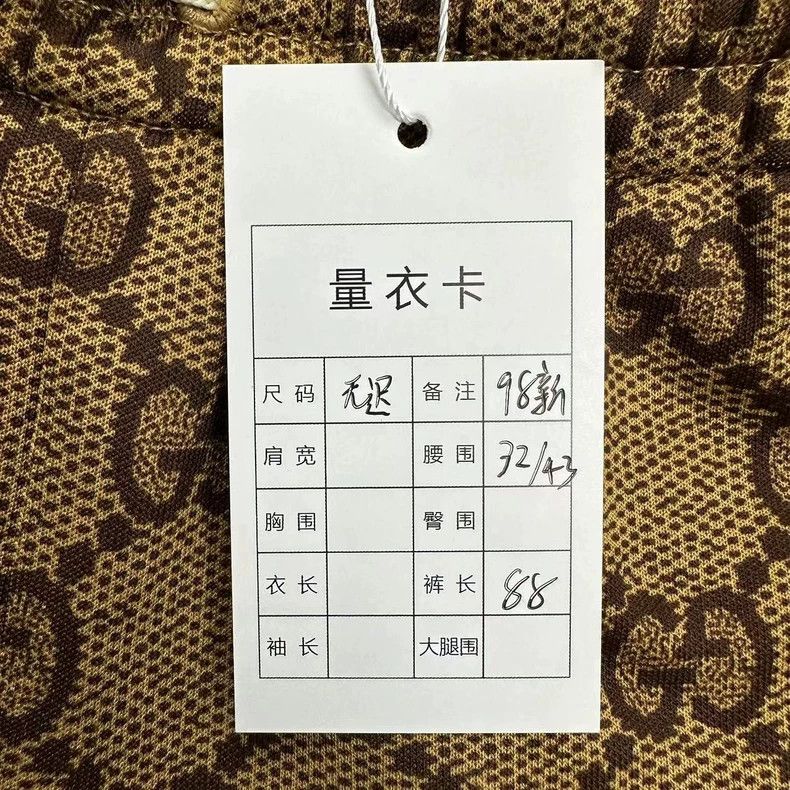 量衣卡
尺码 无迟 备注 98新
肩宽 腰围 32/43
胸围 臀围
衣长 裤长 88
袖长 大腿围